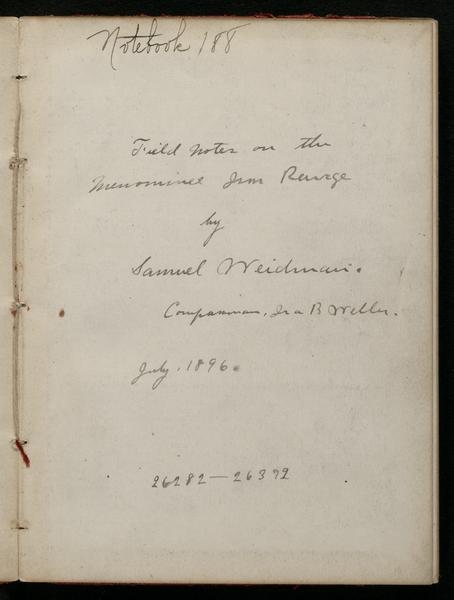 Notebook 188
Field Notes on the
Menominee Iron Range
by
Samuel Weidman.
Companion, Ira B Weller.
July, 1896.
26282—26392